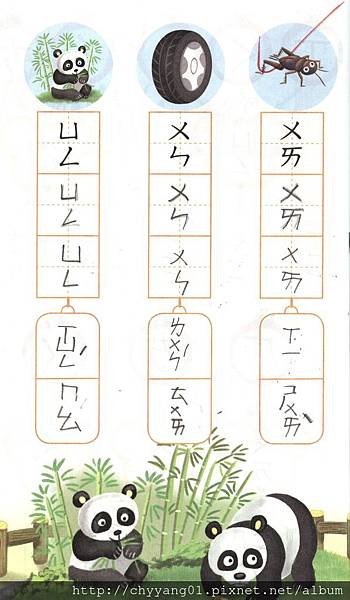 ㄨㄞ
ㄨㄞ
ㄨㄞ
ㄒㄧ
ㄕㄨㄞˋ
ㄨㄣ
ㄨㄣ
ㄨㄣ
ㄌㄨㄣˊ
ㄊㄨㄞ
ㄩㄥ
ㄩㄥ
ㄩㄥ
ㄒㄩㄥˊ
ㄇㄠ
http://chyyang01.pixnet.net/album